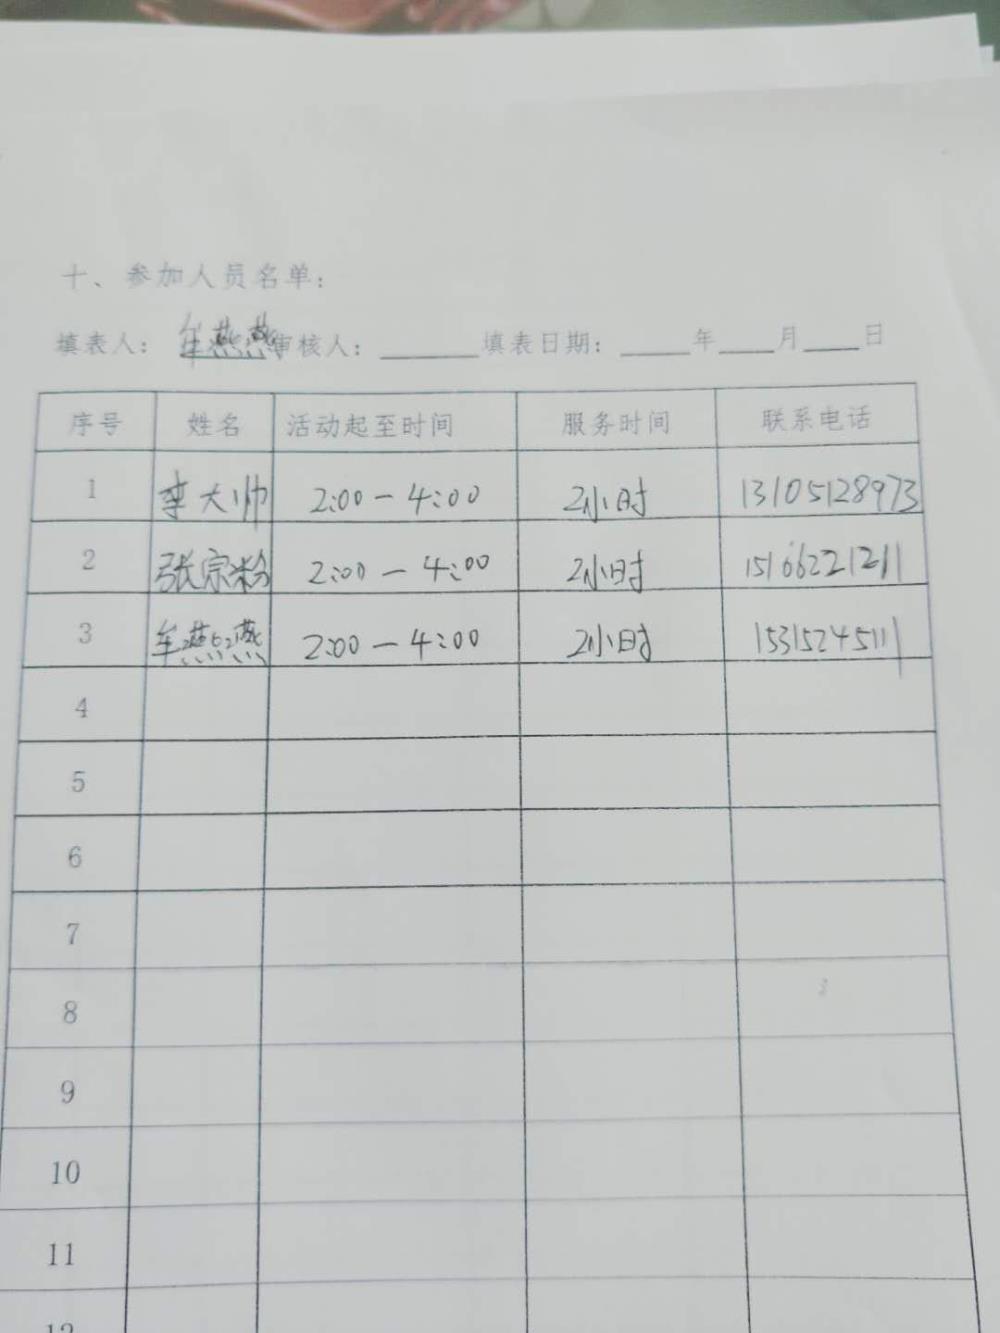 十、参加人员名单：
填表人：牟燕燕 审核人：______ 填表日期：____年____月____日
序号 姓名 活动起至时间 服务时间 联系电话
1 李大帅 2:00－4:00 2小时 13105128973
2 张宗粉 2:00－4:00 2小时 15166221211
3 牟燕燕 2:00－4:00 2小时 15315245111
4
5
6
7
8
9
10
11
12